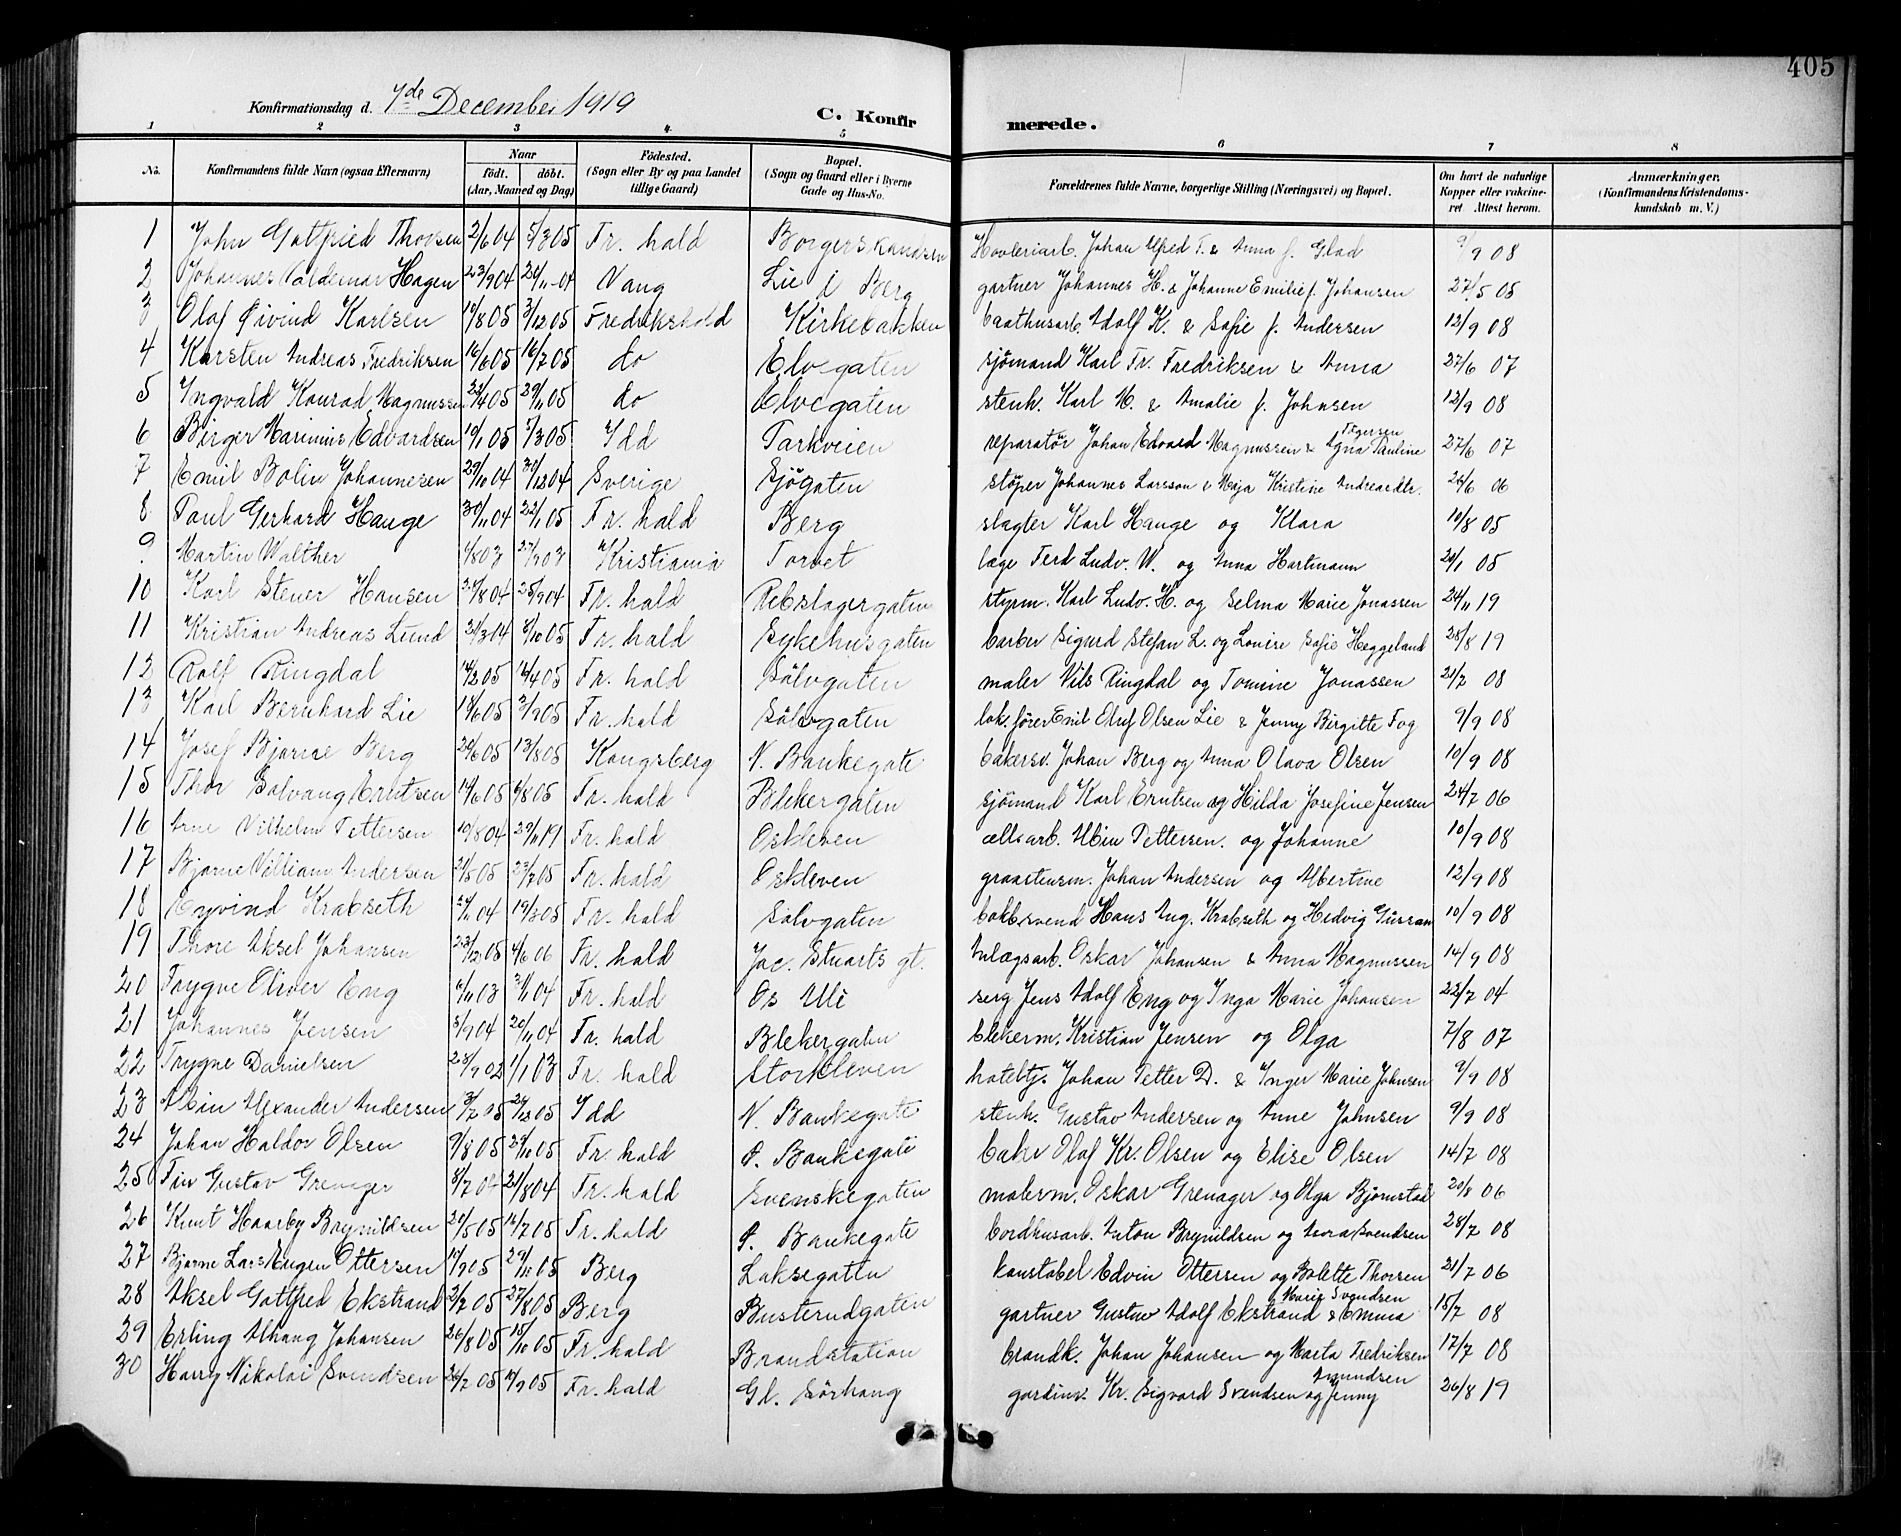 405
Konfirmationsdag d. 7de December 1919
C. Konfirmerede.
1 2 3 4 5 6 7 8
No. Konfirmandens fulde Navn (ogsaa Efternavn) Naar födt. döbt. (Aar, Maaned og Dag) Födested. (Sogn eller By og paa Landet tillige Gaard) Bopæl. (Sogn og Gaard eller i Byerne Gade og Hus-No. Forældrenes fulde Navne, borgerlige Stilling (Næringsvei) og Bopæl. Om havt de naturlige Kopper eller vakcineret Attest herom. Anmærkninger. (Konfirmandens Kristendomskundskab m. V.)
1 John Gottfried Thorsen 2/6 04 5/3 05 Fr. hald Borgerskandsen Hovleriarb. Johan Alfred T. & Anna f. Glad 9/9 08
2 Johannes Valdemar Hagen 23/9 04 20/11 04 Vang Lie i Berg gartner Johannes H. & Johanne Emilie f. Johansen 27/5 05
3 Olaf Øivind Karlsen 19/8 05 3/12 05 Fredrikshald Kirkebakken baathusarb. Adolf K. & Sofie f. Andersen 12/9 08
4 Karsten Andreas Fredriksen 16/6 05 16/7 05 do Elvegaten sjömand Karl Fr. Fredriksen & Anna 27/6 07
5 Ingvald Konrad Magnussen 22/4 05 29/11 05 do Elvegaten stenh. Karl M. & Amalie f. Johnsen 12/9 08
6 Birger Marinius Edvardsen 10/1 05 5/3 05 Idd Parkveien reparatør Johan Edvard Magnussen & Agna Pauline 27/6 07
7 Emil Bolin Johannesen 29/10 04 30/12 04 Sverige Sjögaten stöper Johannes Larsson & Maja Kristine Andreasdtr. 26/6 06
8 Paul Gerhard Hauge 30/11 04 22/1 05 Fr. hald Berg slagter Karl Hauge og Klara 10/8 05
9 Martin Walther 1/8 03 27/9 03 Kristiania Torvet læge Ferd Ludv. W. og Anna Hartmann 20/1 05
10 Karl Stener Hansen 24/8 04 25/9 04 Fr. hald Rebslagergaten styrm. Karl Ludv. H. og Selma Marie Jonassen 24/11 19
11 Kristian Andreas Lund 31/3 04 8/10 05 Fr. hald Sykehusgaten barber Sigurd Stefan L. og Lovise Sofie Heggeland 28/8 19
12 Rolf Ringdal 14/2 05 16/4 05 Fr. hald Sölvgaten maler Nils Ringdal og Tomine Jonassen 21/7 08
13 Karl Bernhard Lie 18/6 05 3/9 05 Fr. hald Sölvgaten lok.förer Emil Oluf Olsen Lie & Jenny Birgitte Fog 9/9 08
14 Josef Bjarne Berg 20/6 05 13/8 05 Kongsberg N. Bankegate bakersv. Johan Berg og Anna Olava Olsen 10/9 08
15 Thor Solvang Erntsen 14/6 05 6/8 05 Fr. hald Blekergaten sjömand Karl Erntsen og Hilda Josefine Jensen 24/7 06
16 Arne Vilhelm Pettersen 10/8 04 29/11 19 Fr. hald Oskleven cellsarb. Albin Pettersen. og Johanne 10/9 08
17 Bjarne Villiam Andersen 21/5 05 23/7 05 Fr. hald Oskleven graastensm. Johan Andersen og Albertine 12/9 08
18 Eyvind Krabseth 24/11 04 19/3 05 Fr. hald Sölvgaten bokb.svend Hans Aug. Krabseth og Hedvig 10/9 08
19 Thore Aksel Johansen 23/12 05 4/6 06 Fr. hald Jac. Stuarts gt. Anlægsarb. Oskar Johansen & Anna Magnussen 14/9 08
20 Trygve Oliver Eng 6/11 03 31/1 04 Fr. hald Os Alle serg Jens Adolf Eng og Inga Marie Johansen 22/7 04
21 Johannes Jensen 5/9 04 20/11 04 Fr. hald Blekergaten blikerm. Kristian Jensen og Olga 7/8 07
22 Trygve Danielsen 23/9 02 1/1 03 Fr. hald Storkleven hotelbtj. Johan Petter D. & Inger Marie Johnsen 9/9 08
23 Albin Alexander Andersen 3/7 05 24/12 05 Idd N. Bankegate stenh. Gustav Andersen og Anne Johnsen 9/9 08
24 Johan Haldor Olsen 9/8 05 29/10 05 Fr. hald Ø. Bankegate baker Olaf Kr. Olsen og Elise Olsen 14/7 08
25 Fin Gustav Grenager 8/7 04 21/8 04 Fr. hald Svenskegaten malerm. Oskar Grenager og Olga Bjørnstad 20/8 06
26 Knut Haarby Brynildsen 29/5 05 16/7 05 Fr. hald Ø. Bankegate bordhusarb. Anton Brynildsen og Svendsen 28/7 08
27 Bjarne Lars Eugen Ottersen 18/9 05 29/10 05 Berg Laksegaten konstabel Edvin Ottersen og Bolette Thorsen 21/7 06
28 Aksel Gottfred Ekstrand 2/7 05 27/8 05 Berg Busterudgaten gartner Gustav Adolf Ekstrand & Emma Marie Svendsen 15/7 08
29 Erling Johansen 26/8 05 15/10 05 Fr. hald Brandstation brandk. Johan Johansen og Marta Fredriksen 17/7 08
30 Harry Nikolai Svendsen 26/7 05 17/9 05 Fr. hald Gl. Sörhaug gardinv. Kr. Sigvard Svendsen og Jenny Amundsen 26/8 19